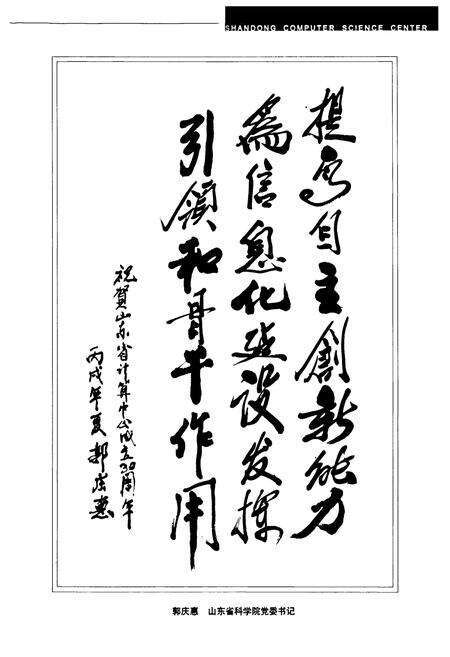 SHANDONG COMPUTER SCIENCE CENTER
提高自主創新能力
為信息化建設发揮
引領和骨干作用
祝賀山东省计算中心成立30周年
丙戌年夏 郭庆惠
郭庆惠 山东省科学院党委书记